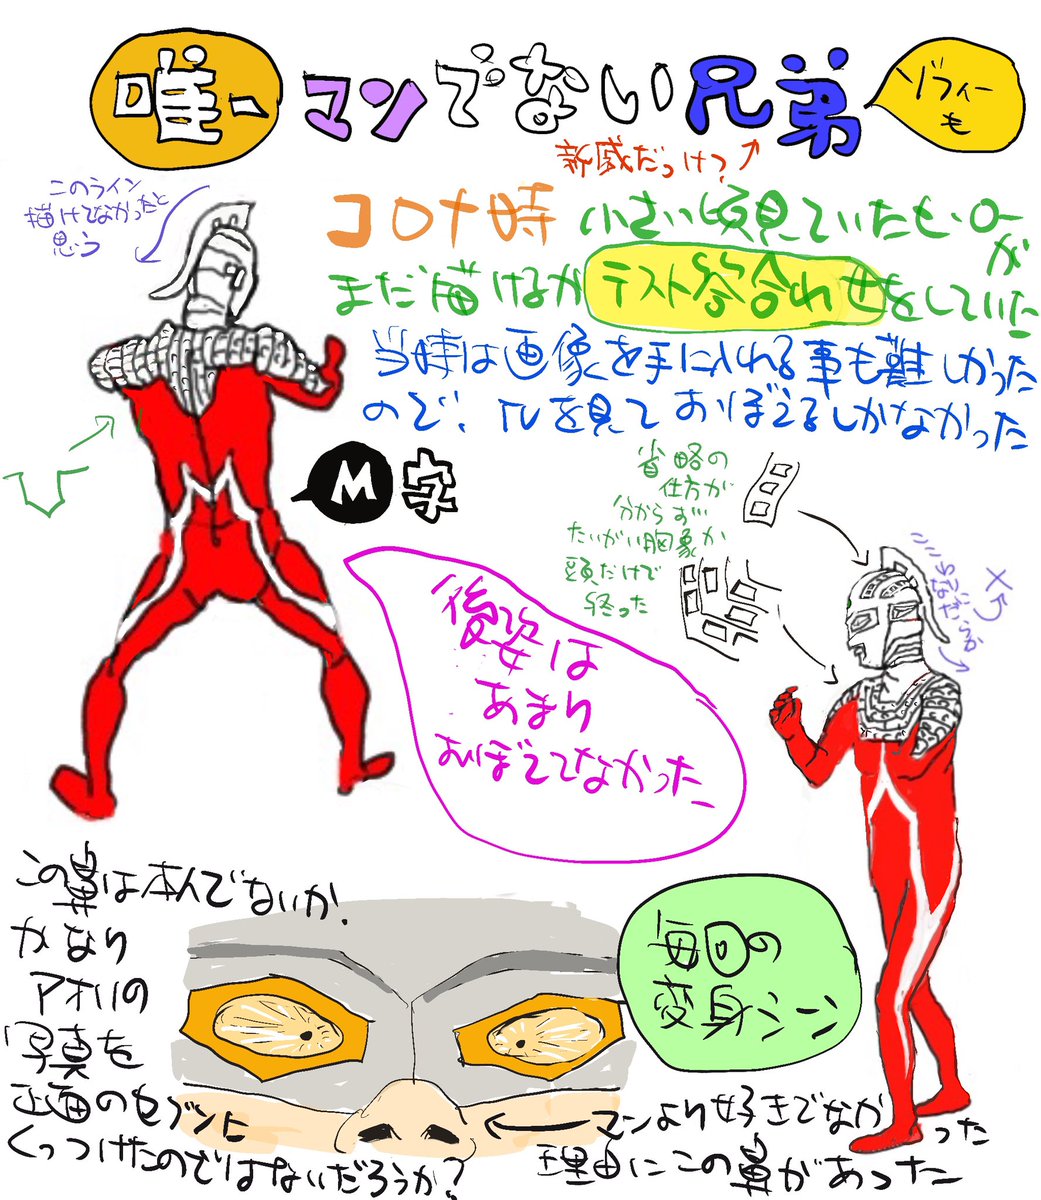 唯一マンでない兄弟
ゾフィーも
新威だっけ?
このライン
描けてなかったと
思う
コロナ時 小さい頃見ていたヒーローが
まだ描けるかテスト答合わせをしていた
当時は画像を手に入れる事も難しかった
ので、TVを見ておぼえるしかなかった
M字
省略の
仕方が
分からず
たいがい胸象か
頭だけで
終った
後姿は
あまり
おぼえてなかった
この鼻は本んでないか、
かなり
アオリの
写真を
正面のセブンに
くっつけたのではないだろうか?
毎回の
変身シーン
マンより好きでなかった
理由にこの鼻があった